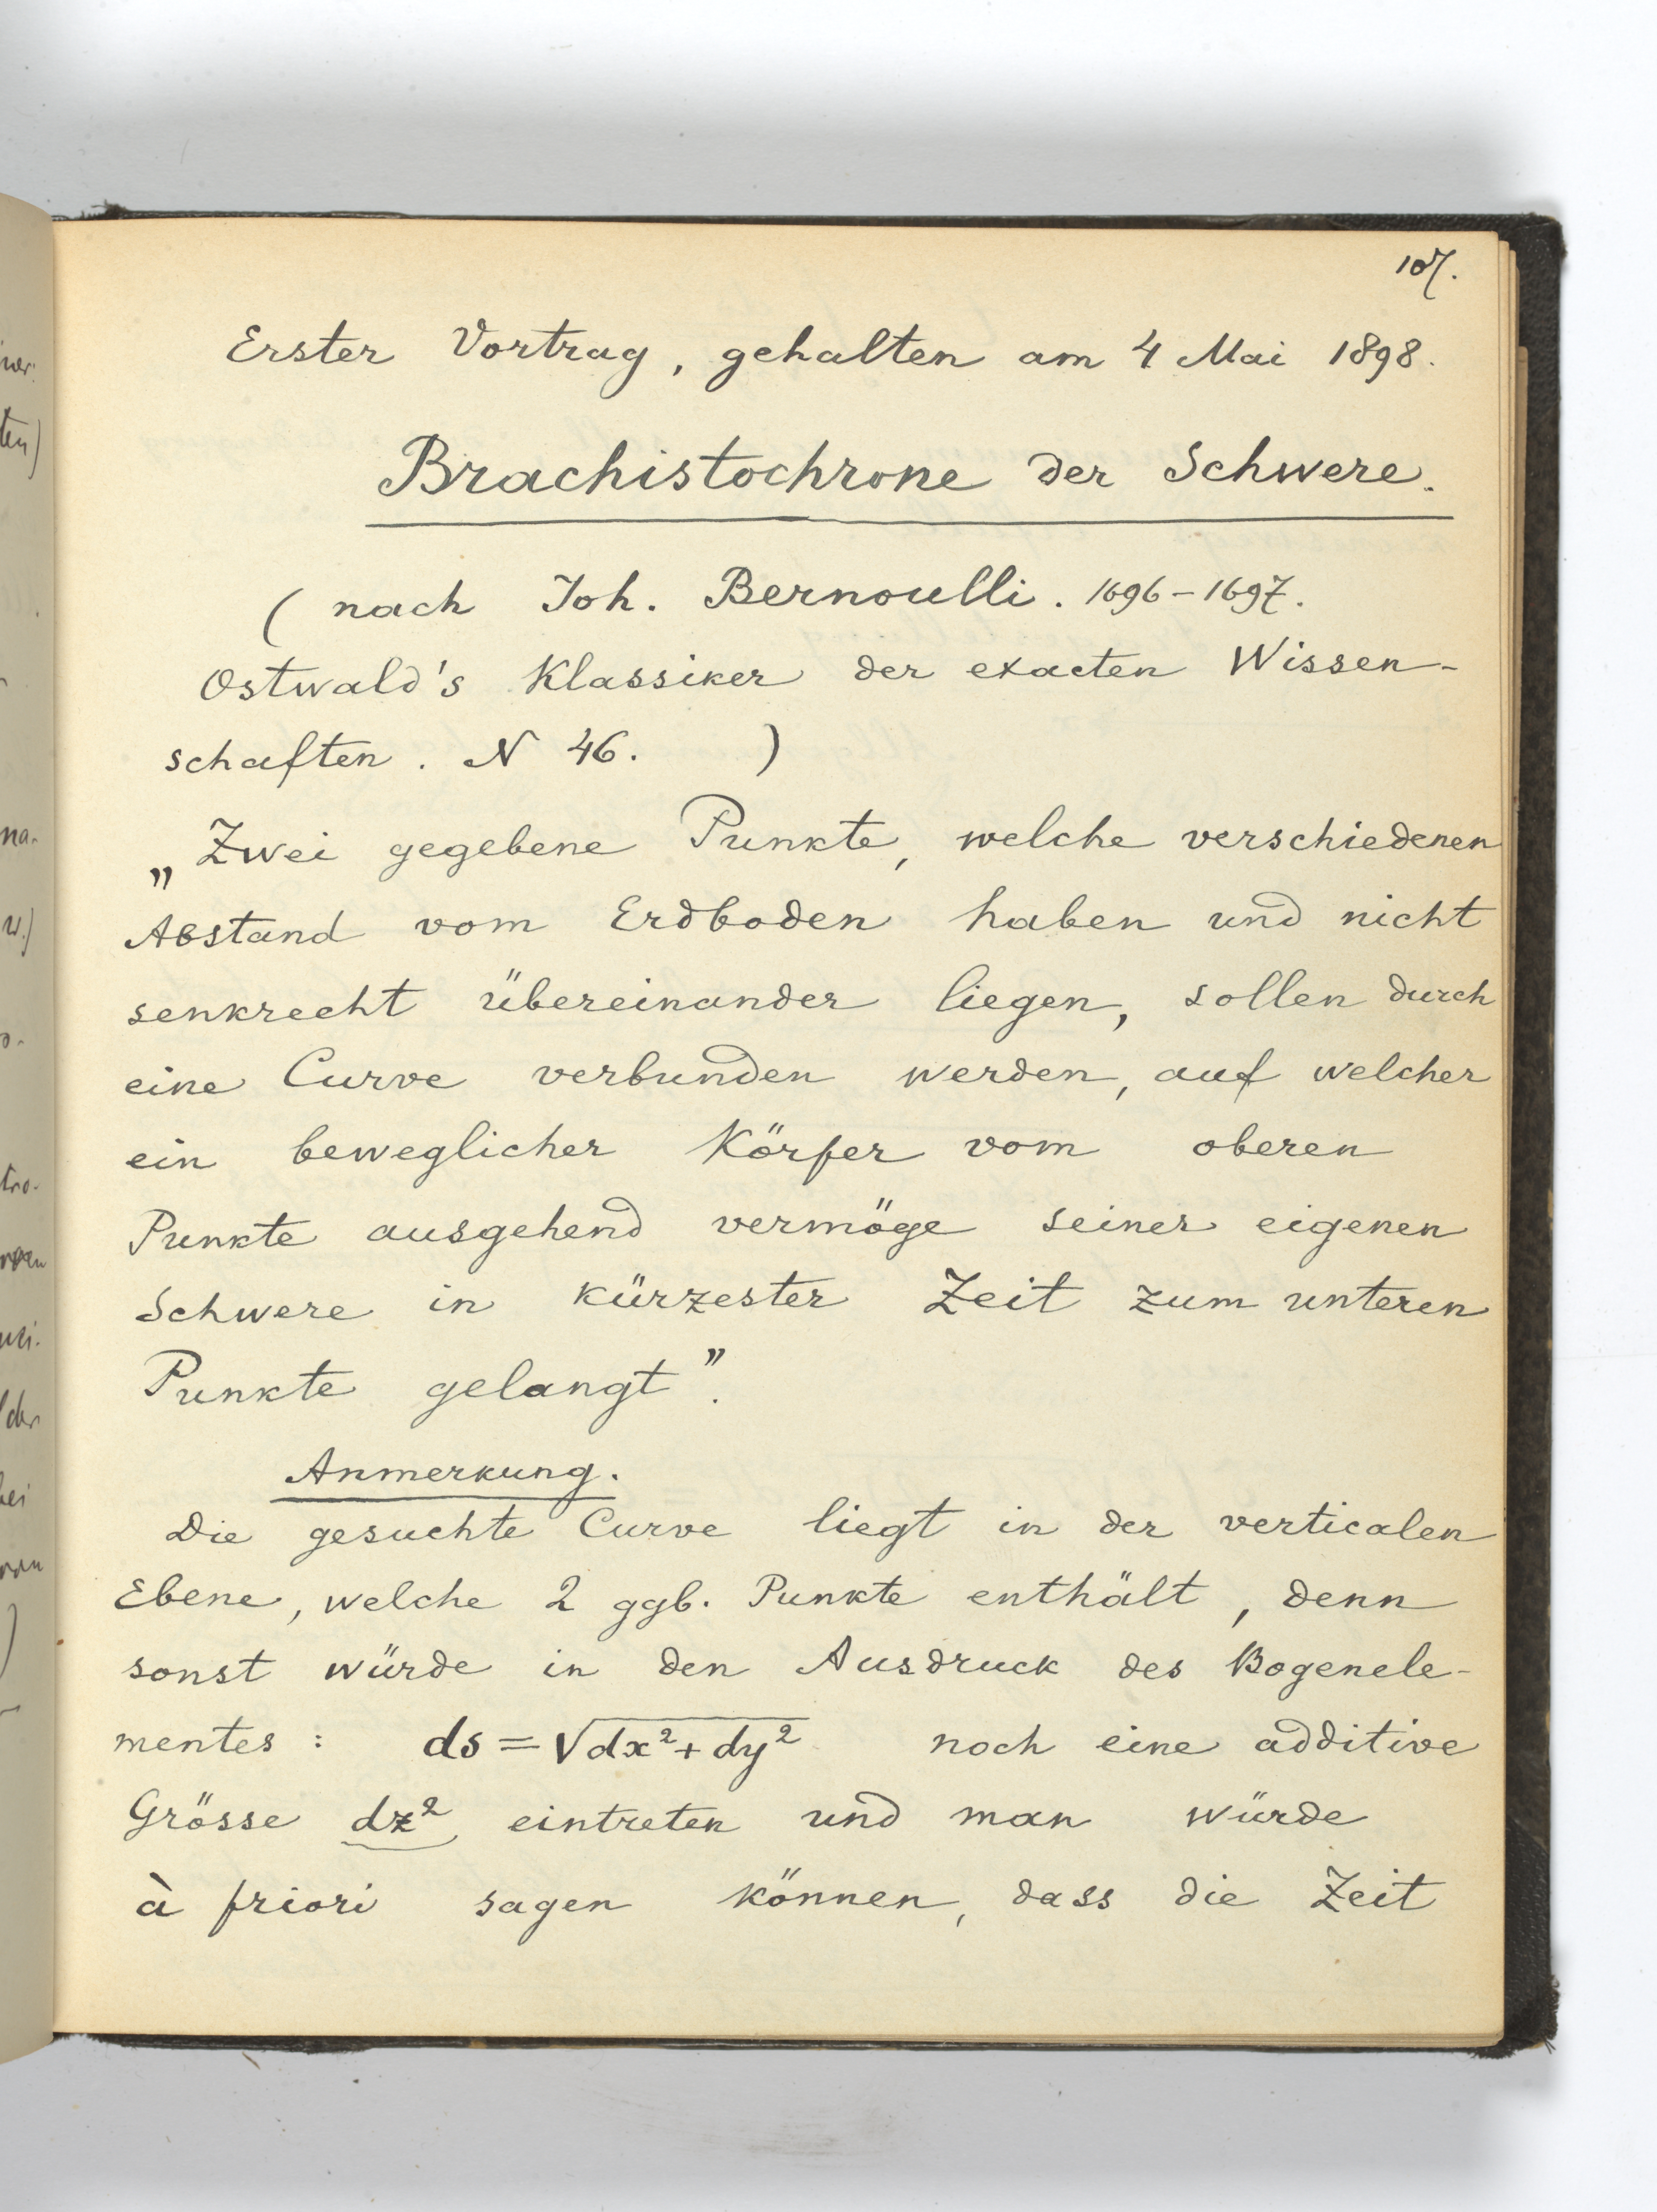 107.
Erster Vortrag, gehalten am 4 Mai 1898.
Brachistochrone der Schwere.
( nach Joh. Bernoulli. 1696-1697.
Ostwald's Klassiker der exacten Wissen-
schaften. N 46. )
„Zwei gegebene Punkte, welche verschiedenen
Abstand vom Erdboden haben und nicht
senkrecht übereinander liegen, sollen durch
eine Curve verbunden werden, auf welcher
ein beweglicher Körper vom oberen
Punkte ausgehend vermöge seiner eigenen
Schwere in kürzester Zeit zum unteren
Punkte gelangt”.
Anmerkung.
Die gesuchte Curve liegt in der verticalen
Ebene, welche 2 ggb. Punkte enthält, denn
sonst würde in den Ausdruck des Bogenele-
mentes: ds = √dx²+dy² noch eine additive
Grösse dz² eintreten und man würde
à priori sagen können, dass die Zeit